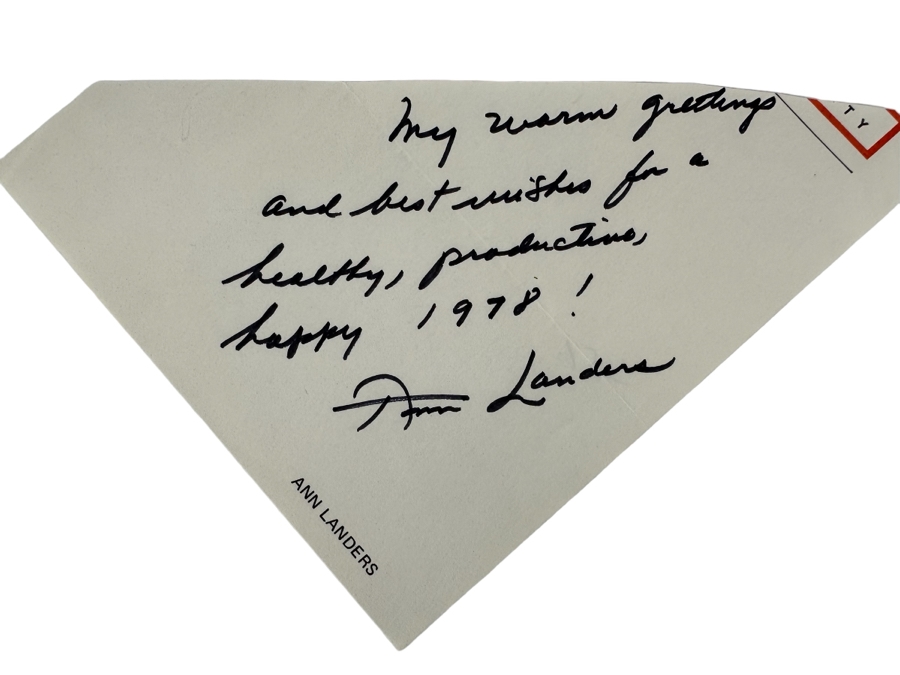 My warm greetings
and best wishes for a
healthy, productive,
happy 1978!
Ann Landers
ANN LANDERS
TY